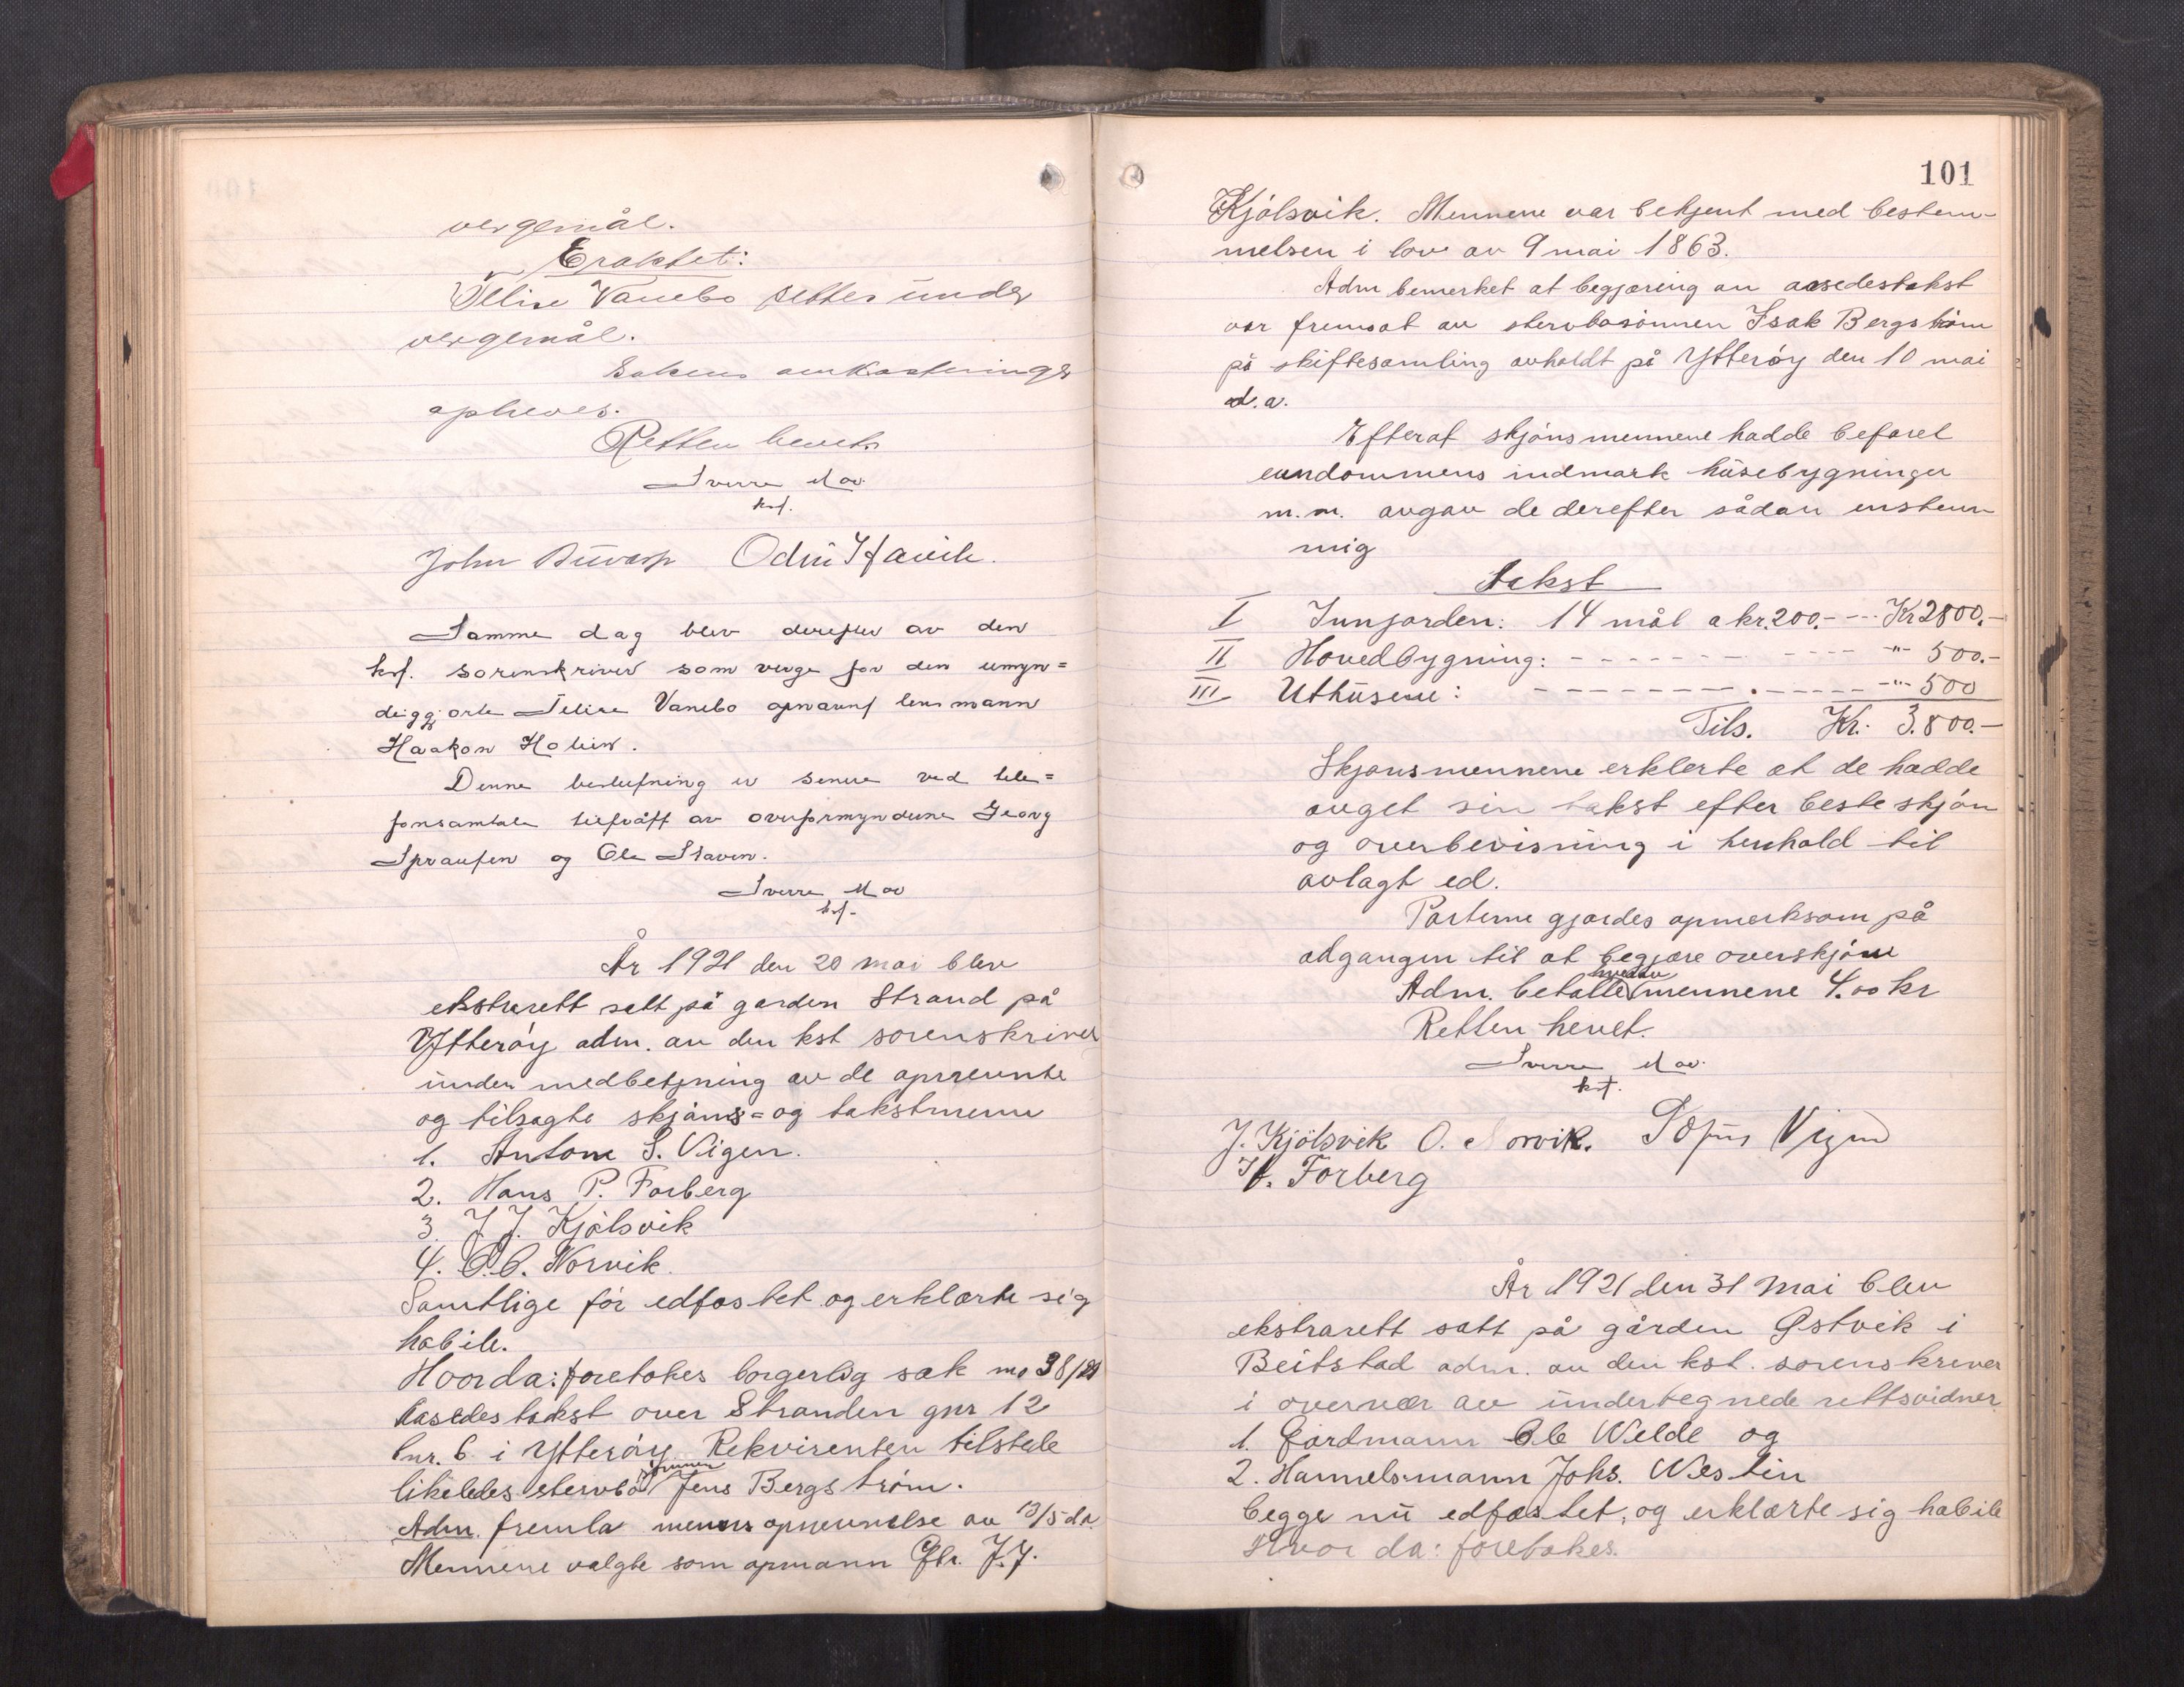 vergemål.
Eraktet:
Vanebo settes under
vergemål.
Sakens omkostninger
opheves.
Retten hevet.
Sverre Mov
kst.
John Odin Havik.
Samme dag blev derefter av den
kst. sorenskriver som verge for den umyn=
diggjorte Vanebo opnævnt lensmann
Haakon
Denne beslutning er senere ved tele=
fonsamtale tiltrådt av overformynderne Georg
og Ole Staven.
Sverre Mov
kst.
År 1921 den 20 mai blev
ekstrarett satt på garden Strand på
Ytterøy adm. av den kst sorenskriver
under medbetjening av de opnevnte
og tilsagte skjøns= og takstmenn
1. Anton S. Vigen.
2. Hans P. Forberg
3. J. J. Kjølsvik
4. O. C. Norvik.
Samtlige før edfæstet og erklærte sig
habile.
Hvorda: foretokes borgerlig sak no 38/21
aasedestakst over Stranden gnr 12
bnr. 6 i Ytterøy. Rekvirenten tilstede
likeledes stervbosønnen Jens Bergstrøm.
Adm. fremla menns opnevnelse av 13/5 d.a.
Mennene valgte som opmann Gbr. J. J.
101
Kjølsvik. Mennene var bekjent med bestem-
melsen i lov av 9 mai 1863.
Adm bemerket at begjæring om aasedestakst
var fremsat av stervbosønnen Isak Bergstrøm
på skiftesamling avholdt på Ytterøy den 10 mai
d. a.
Efterat skjønsmennene hadde befaret
eiendommens indmark husebygninger
m.m. avgav de derefter sådan enstem
mig
Takst
I Innjorden: 14 mål a kr. 200.- --- Kr 2800.-
II Hovedbygning: - - - - - - - - - - " 500.-
III Uthusene: - - - - - - - - - - - " 500
Tils. Kr. 3.800.-
Skjønsmennene erklerte at de hadde
avget sin takst efter beste skjøn
og overbevisning i henhold til
avlagt ed.
Parterne gjordes opmerksom på
adgangen til at begjære overskjønn
Adm. betalte hverav mennene 4.00 kr
Retten hevet.
Sverre Mov.
kst.
J. Kjölsvik O. Norvik. Vigen
H. Forberg
År 1921 den 31 mai blev
ekstrarett satt på gården Østvik i
Beitstad adm. av den kst. sorenskriver
i overvær av undertegnede rettsvidner
1. Gårdmann Ole Welde og
2. Hannelsmann Johs. Westin
begge nu edfæstet, og erklærte sig habile
Hvor da: foretokes.